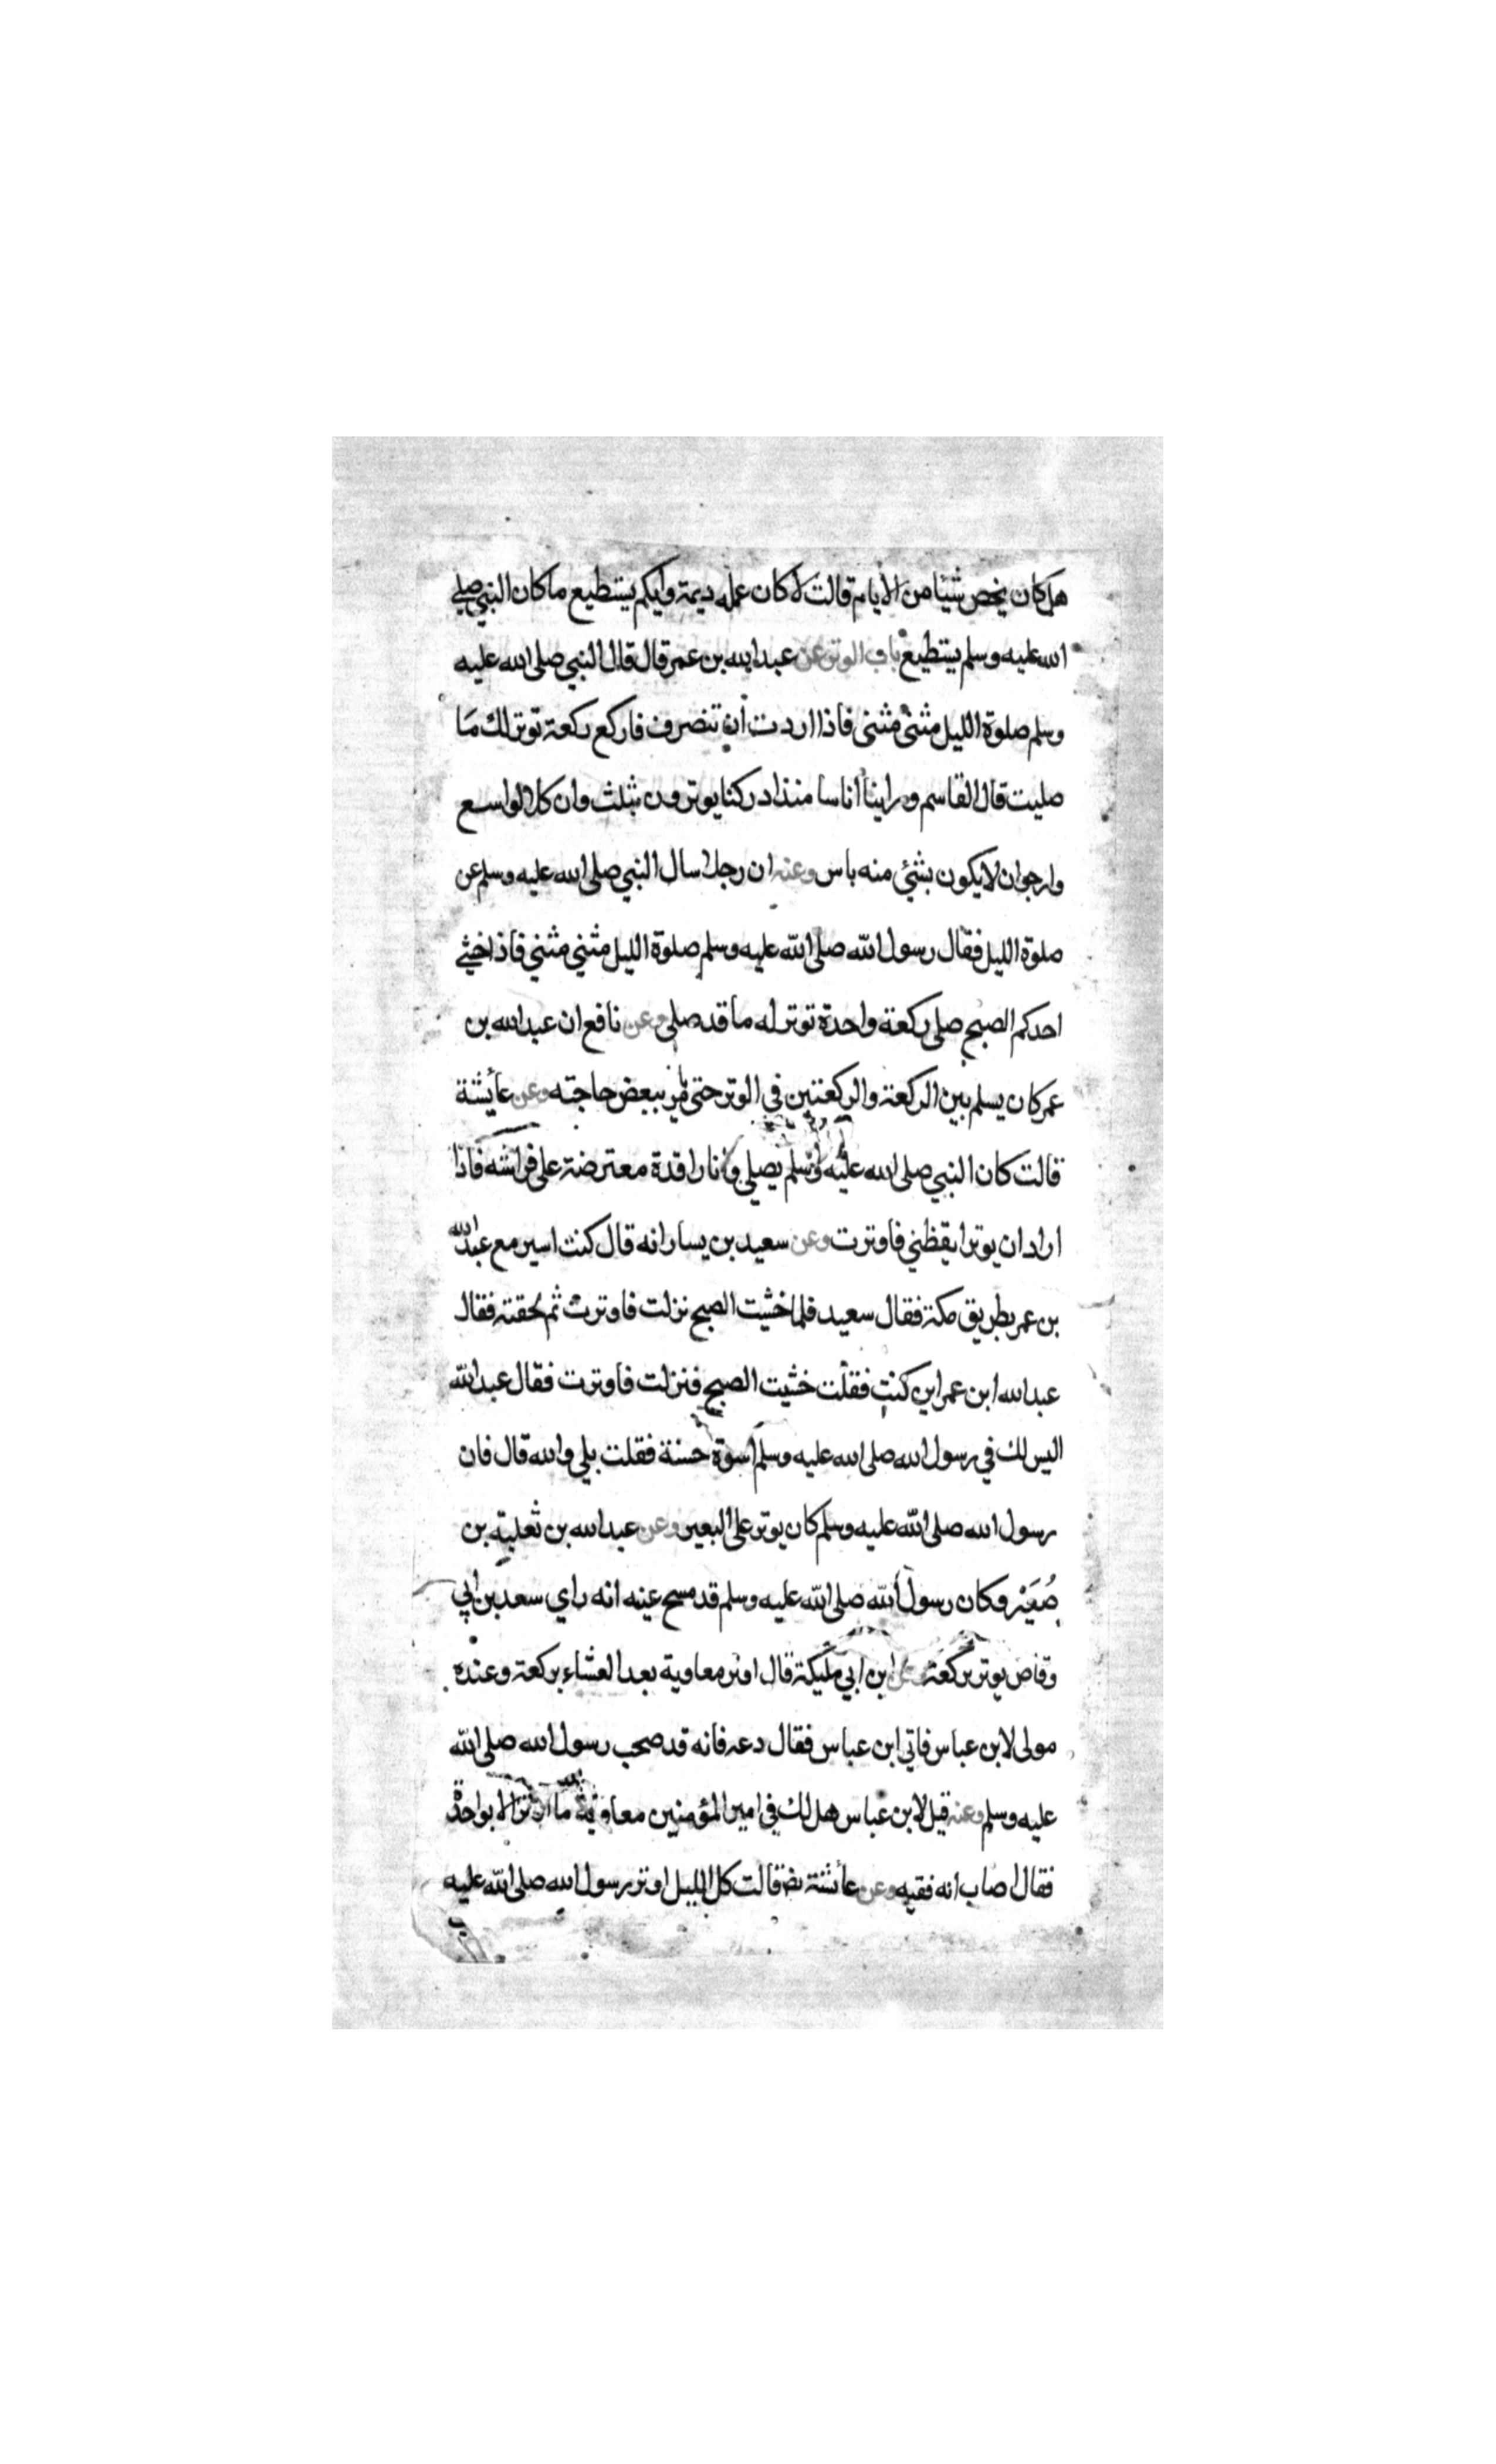 هل كان يخص شيئا من الايام قالت لا كان عمله ديمة وايكم يستطيع ما كان النبي صلى
الله عليه وسلم يستطيع باب الوتر عن عبد الله بن عمر قال قال النبي صلى الله عليه
وسلم صلوة الليل مثنى مثنى فاذا اردت أن تنصرف فاركع ركعة توتر لك مَا
صليت قال القاسم وراينا أناسا منذ ادركنا يوترون بثلث وان كلا لواسع
وارجو ان لا يكون بشئ منه باس وعنه ان رجلا سال النبي صلى الله عليه وسلم عن
صلوة الليل فقال رسول الله صلى الله عليه وسلم صلوة الليل مثني مثني فاذا خشي
احدكم الصبح صلى ركعة واحدة توتر له ما قد صلى وعن نافع ان عبد الله بن
عمر كان يسلم بين الركعة والركعتين في الوتر حتى يامر ببعض حاجته وعن عائشة
قالت كان النبي صلى الله عليه وسلم يصلي وانا راقدة معترضة على فراشه فاذا
اراد ان يوتر ايقظني فاوترت وعن سعيد بن يسار انه قال كنت اسير مع عبد الله
بن عمر بطريق مكة فقال سعيد فلما خشيت الصبح نزلت فاوترت ثم لحقته فقال
عبد الله ابن عمر اين كنت فقلت خشيت الصبح فنزلت فاوترت فقال عبد الله
اليس لك في رسول الله صلى الله عليه وسلم اسوة حسنة فقلت بلي والله قال فان
رسول الله صلى الله عليه وسلم كان يوتر على البعير وعن عبد الله بن ثعلبة بن
صُعَيْر وكان رسول الله صلى الله عليه وسلم قد مسح عينه انه راي سعد بن ابي
وقاص يوتر بركعة وعن ابن ابي مليكة قال اوتر معاوية بعد العشاء بركعة وعنده
مولى لابن عباس فاتي ابن عباس فقال دعه فانه قد صحب رسول الله صلى الله
عليه وسلم وعنه قيل لابن عباس هل لك في امير المؤمنين معاوية ما اوتر الا بواحدة
فقال اصاب انه فقيه وعن عائشة رضـ قالت كل الليل اوتر رسول الله صلى الله عليه